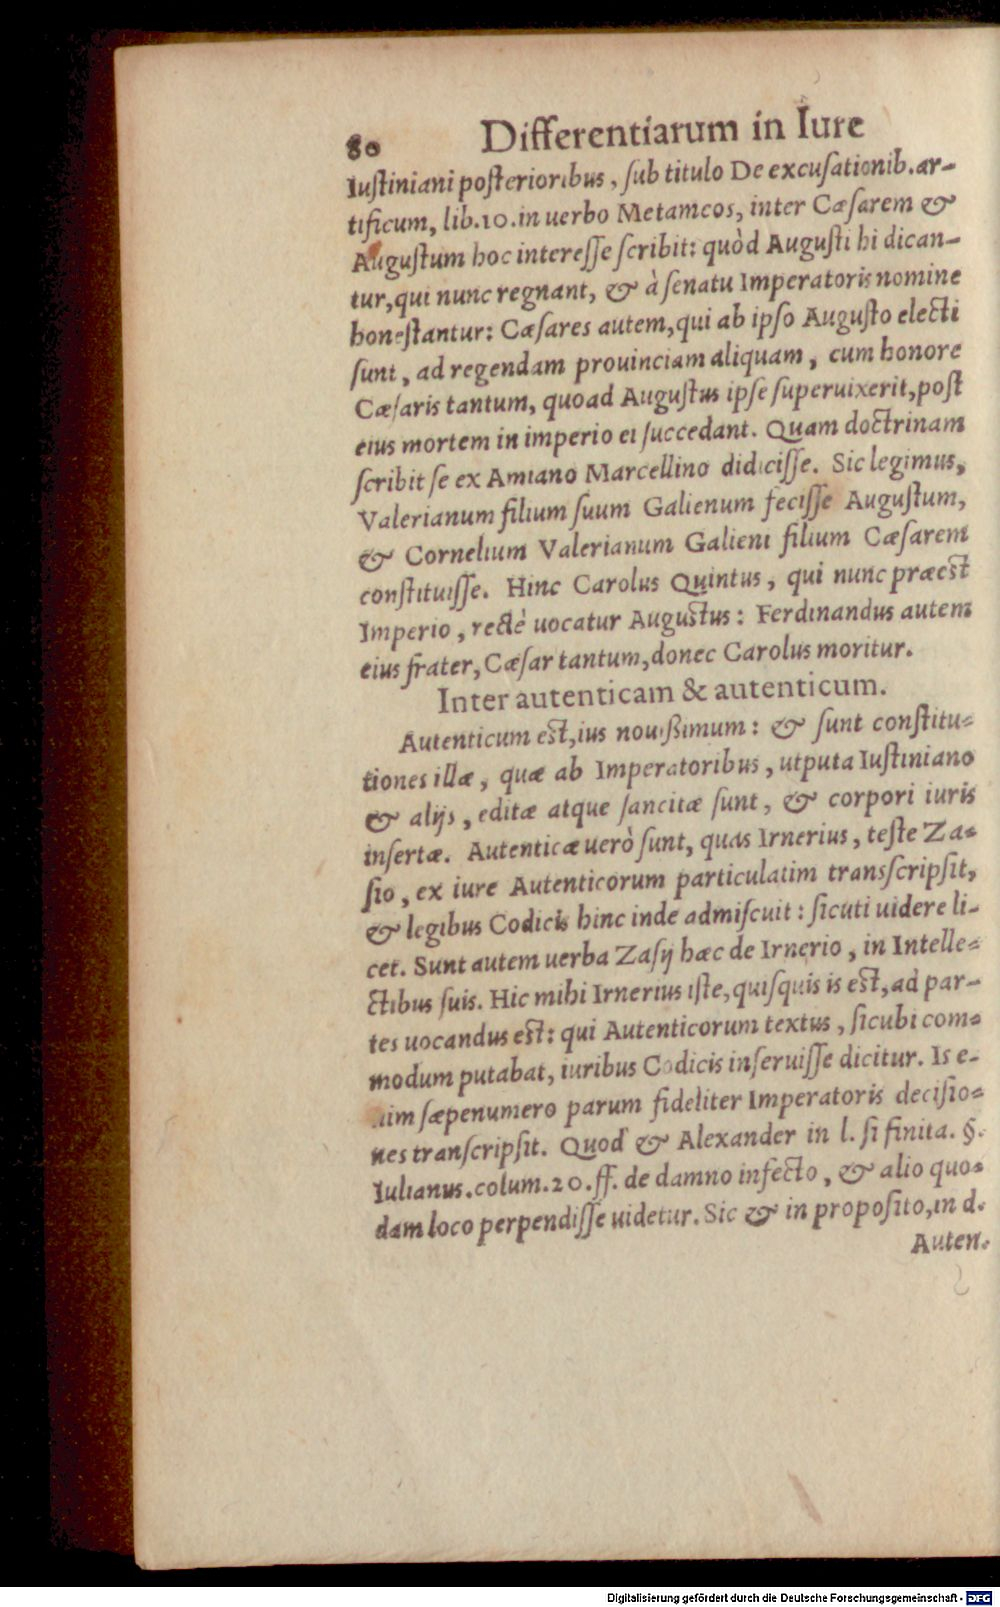 80 Differentiarum in Iure
Iustiniani posterioribus, sub titulo De excusationib. ar-
tificum, lib. 10. in uerbo Metamcos, inter Cæsarem &
Augustum hoc interesse scribit: quòd Augusti hi dican-
tur, qui nunc regnant, & à senatu Imperatoris nomine
honestantur: Cæsares autem, qui ab ipso Augusto electi
sunt, ad regendam prouinciam aliquam, cum honore
Cæsaris tantum, quoad Augustus ipse superuixerit, post
eius mortem in imperio ei succedant. Quam doctrinam
scribit se ex Amiano Marcellino didicisse. Sic legimus,
Valerianum filium suum Galienum fecisse Augustum,
& Cornelium Valerianum Galieni filium Cæsarem
constituisse. Hinc Carolus Quintus, qui nunc præest
Imperio, rectè uocatur Augustus: Ferdinandus autem
eius frater, Cæsar tantum, donec Carolus moritur.
Inter autenticam & autenticum.
Autenticum est, ius nouißimum: & sunt constitu-
tiones illæ, quæ ab Imperatoribus, utputa Iustiniano
& alijs, editæ atque sancitæ sunt, & corpori iuris
insertæ. Autenticæ uerò sunt, quas Irnerius, teste Za-
sio, ex iure Autenticorum particulatim transscripsit,
& legibus Codicis hinc inde admiscuit: sicuti uidere li-
cet. Sunt autem uerba Zasij hæc de Irnerio, in Intelle-
ctibus suis. Hic mihi Irnerius iste, quisquis is est, ad par-
tes uocandus est: qui Autenticorum textus, sicubi com-
modum putabat, iuribus Codicis inseruisse dicitur. Is e-
nim sæpenumero parum fideliter Imperatoris decisio-
nes transcripsit. Quod & Alexander in l. si finita. §.
Iulianus. colum. 20. ff. de damno infecto, & alio quo-
dam loco perpendisse uidetur. Sic & in proposito, in d.
Auten-
Digitalisierung gefördert durch die Deutsche Forschungsgemeinschaft - DFG